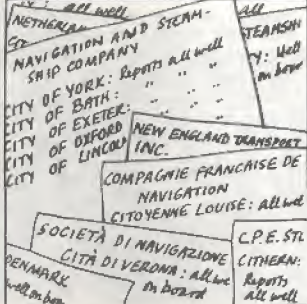 : all well
NETHERLAN
all
STEAMSH
Y: Well
on boar
NAVIGATION AND STEAM-
SHIP COMPANY
CITY OF YORK: Reports all well
CITY OF BATH: " " "
CITY OF EXETER: " " "
CITY OF OXFORD
CITY OF LINCOLN
NEW ENGLAND TRANSPORT
INC.
COMPAGNIE FRANCAISE DE
NAVIGATION
CITOYENNE LOUISE: all well
SOCIETÀ DI NAVIGAZIONE
CITÀ DI VERONA: all we
on board
C.P.E. STE
CITHERN:
Reports
all well
DENMARK
well on boa